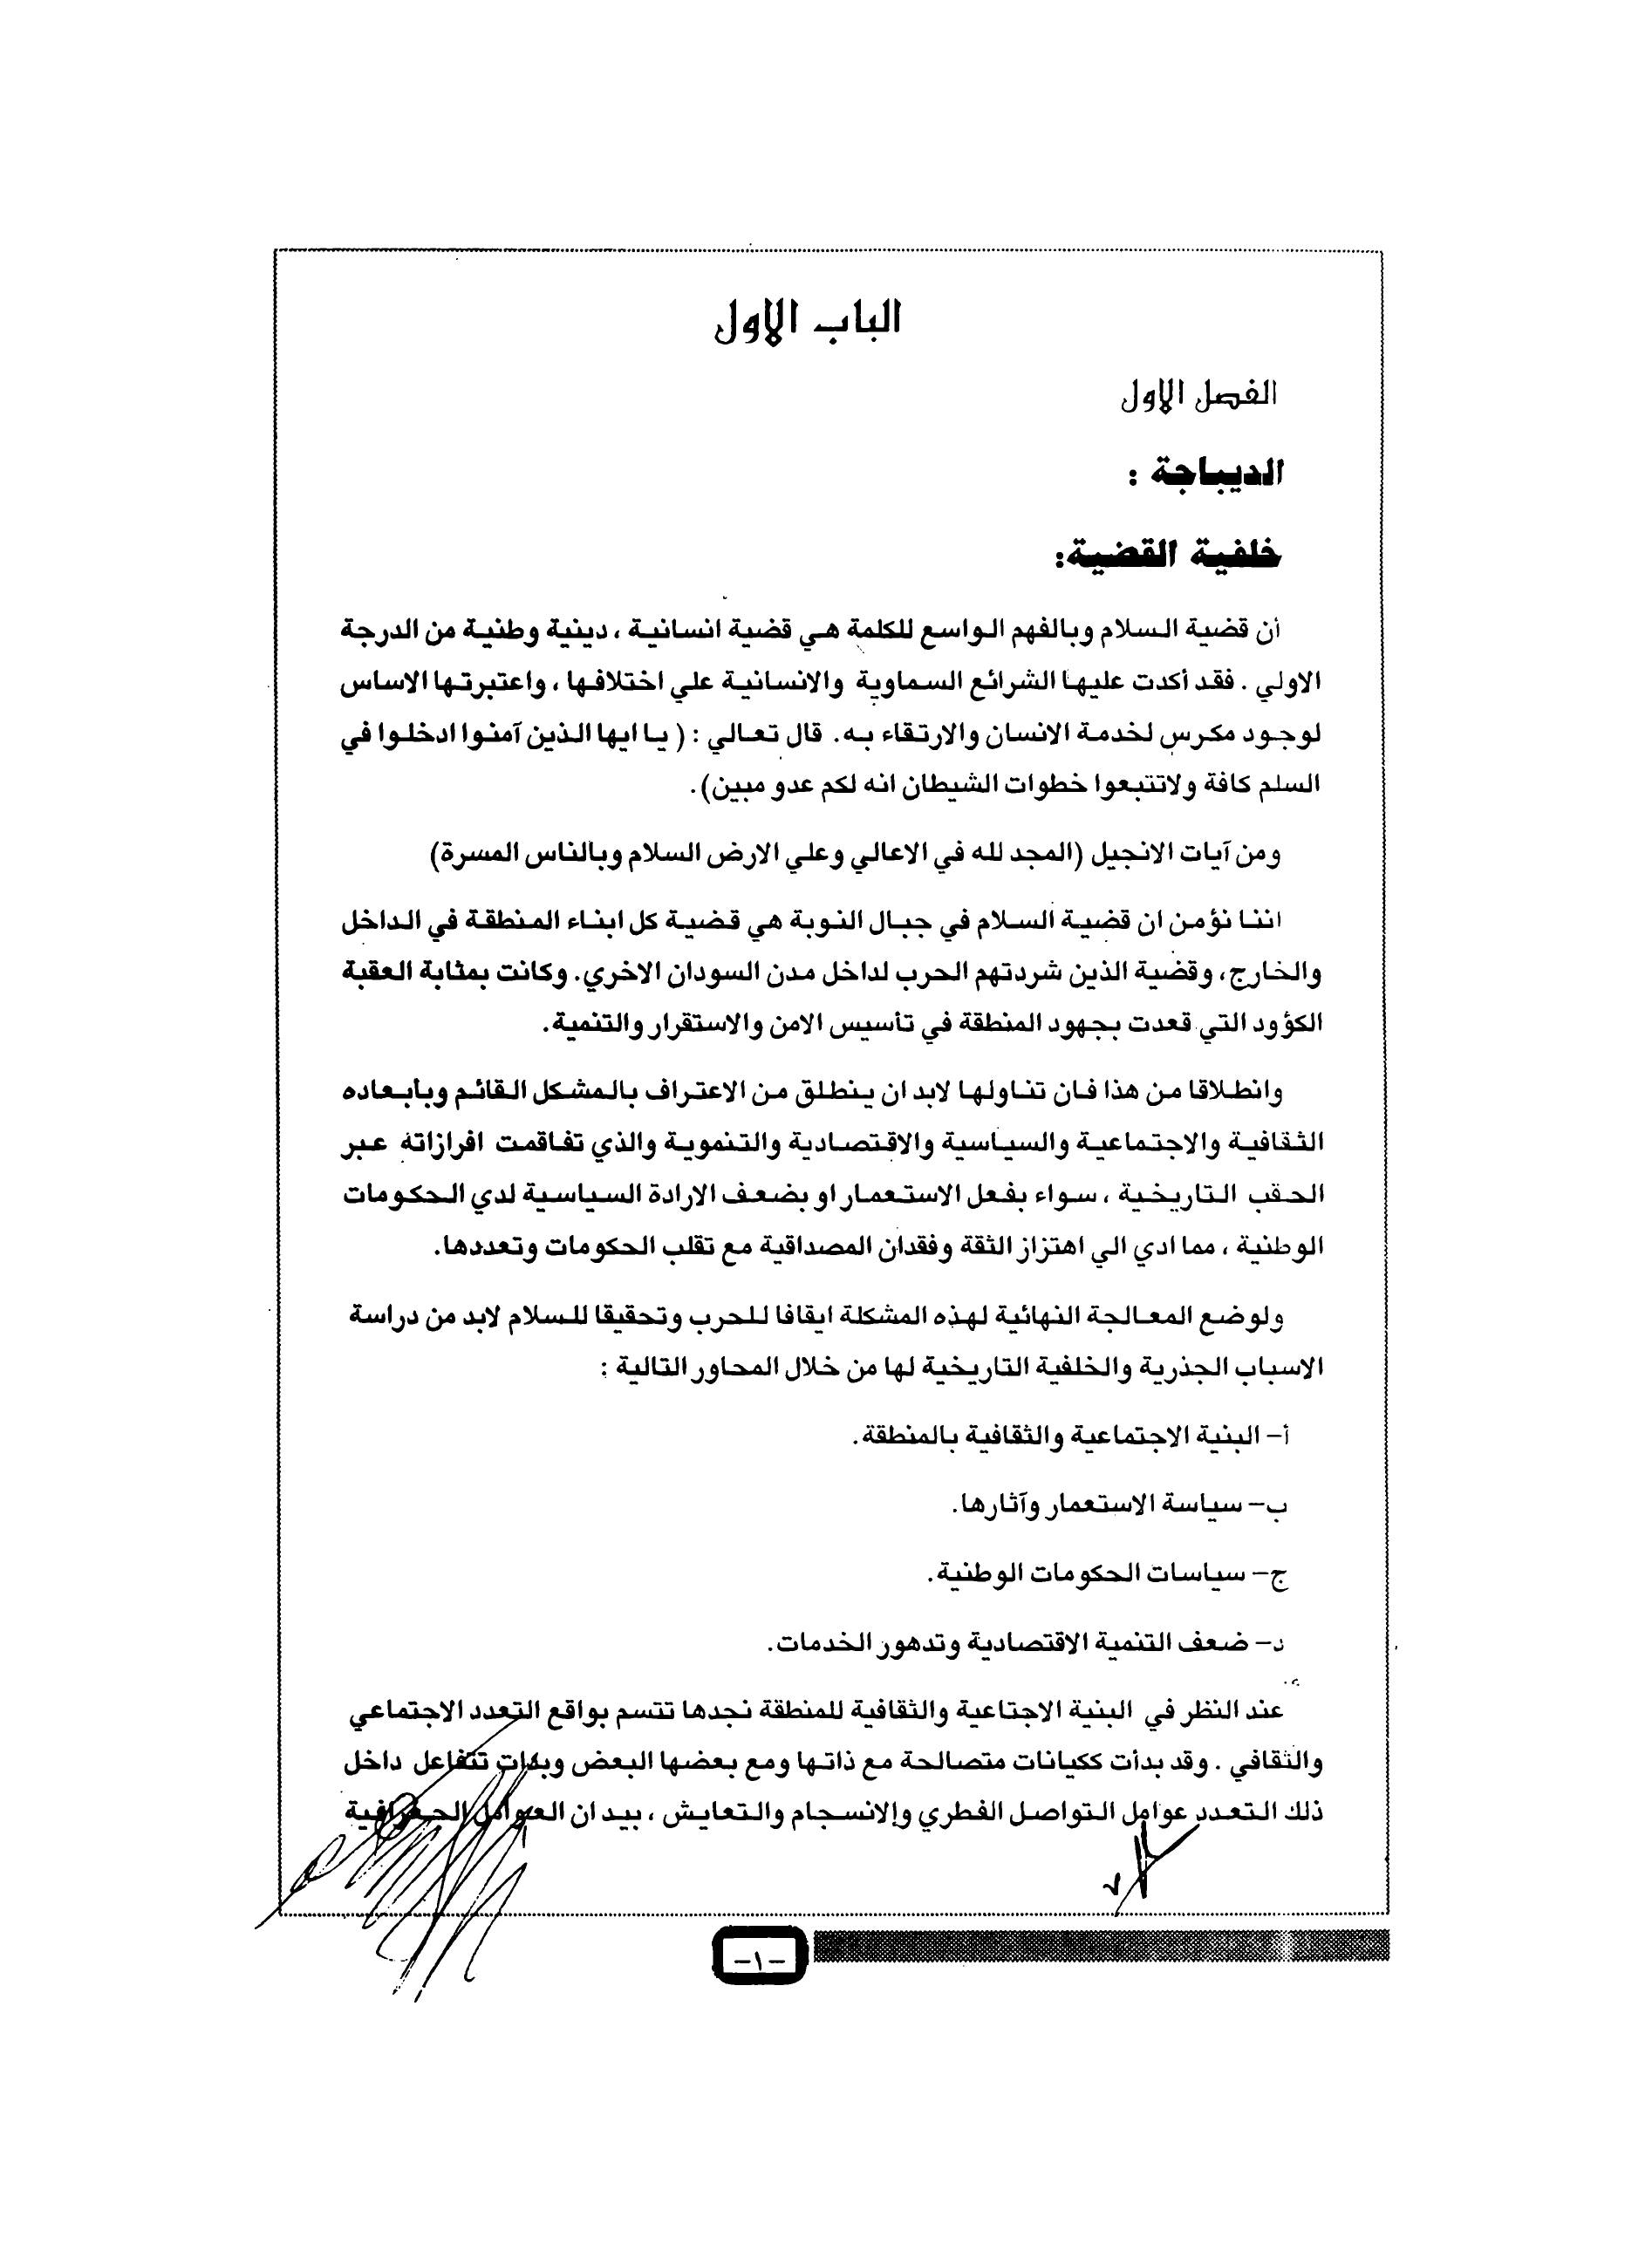 الباب الاول
الفصل الاول
الديباجة :
خلفية القضية:
أن قضية السلام وبالفهم الواسع للكلمة هي قضية انسانية ، دينية وطنية من الدرجة
الاولي . فقد أكدت عليها الشرائع السماوية والانسانية علي اختلافها ، واعتبرتها الاساس
لوجود مكرس لخدمة الانسان والارتقاء به. قال تعالي : ( يا ايها الذين آمنوا ادخلوا في
السلم كافة ولاتتبعوا خطوات الشيطان انه لكم عدو مبين).
ومن آيات الانجيل (المجد لله في الاعالي وعلي الارض السلام وبالناس المسرة)
اننا نؤمن ان قضية السلام في جبال النوبة هي قضية كل ابناء المنطقة في الداخل
والخارج، وقضية الذين شردتهم الحرب لداخل مدن السودان الاخري. وكانت بمثابة العقبة
الكؤود التي قعدت بجهود المنطقة في تأسيس الامن والاستقرار والتنمية.
وانطلاقا من هذا فان تناولها لابد ان ينطلق من الاعتراف بالمشكل القائم وبأبعاده
الثقافية والاجتماعية والسياسية والاقتصادية والتنموية والذي تفاقمت افرازاته عبر
الحقب التاريخية ، سواء بفعل الاستعمار او بضعف الارادة السياسية لدي الحكومات
الوطنية ، مما ادي الي اهتزاز الثقة وفقدان المصداقية مع تقلب الحكومات وتعددها.
ولوضع المعالجة النهائية لهذه المشكلة ايقافا للحرب وتحقيقا للسلام لابد من دراسة
الاسباب الجذرية والخلفية التاريخية لها من خلال المحاور التالية :
أ– البنية الاجتماعية والثقافية بالمنطقة.
ب– سياسة الاستعمار وآثارها.
ج– سياسات الحكومات الوطنية.
د– ضعف التنمية الاقتصادية وتدهور الخدمات.
عند النظر في البنية الاجتاعية والثقافية للمنطقة نجدها تتسم بواقع التعدد الاجتماعي
والثقافي . وقد بدأت ككيانات متصالحة مع ذاتها ومع بعضها البعض وبدات تتفاعل داخل
ذلك التعدد عوامل التواصل الفطري والانسجام والتعايش ، بيد ان العوامل الجغرافية
–١–